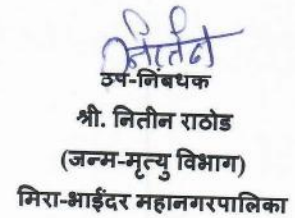 नितीन
उप-निबंधक
श्री. नितीन राठोड
(जन्म-मृत्यु विभाग)
मिरा-भाईंदर महानगरपालिका